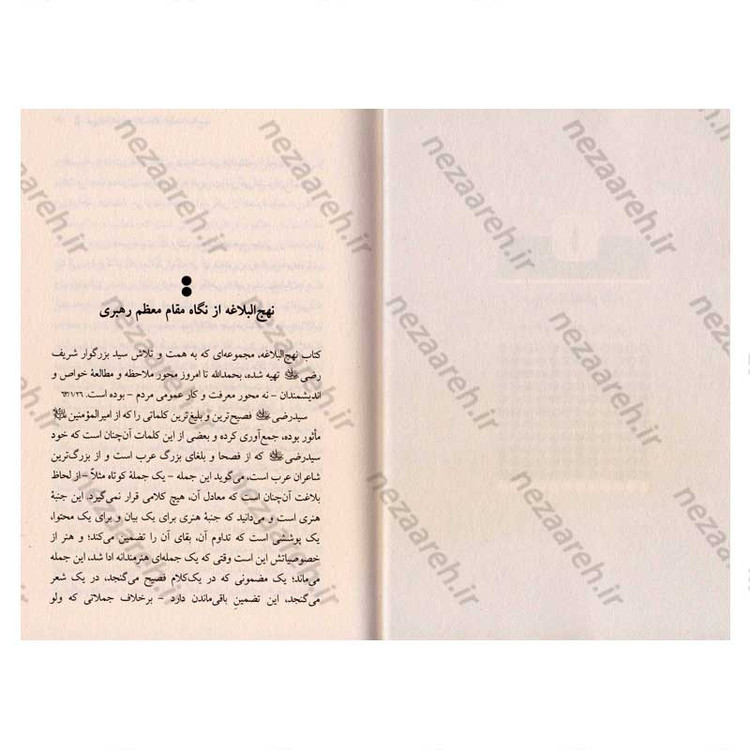 نهج‌البلاغه از نگاه مقام معظم رهبری
کتاب نهج‌البلاغه، مجموعه‌ای که به همت و تلاش سید بزرگوار شریف
رضی تهیه شده، بحمدالله تا امروز محور ملاحظه و مطالعهٔ خواص و
اندیشمندان - نه محور معرفت و کار عمومی مردم - بوده است.
سیدرضی فصیح‌ترین و بلیغ‌ترین کلماتی را که از امیرالمؤمنین
مأثور بوده، جمع‌آوری کرده و بعضی از این کلمات آن‌چنان است که خود
سیدرضی که از فصحا و بلغای بزرگ عرب است و از بزرگ‌ترین
شاعران عرب است، می‌گوید این جمله - یک جملهٔ کوتاه مثلاً - از لحاظ
بلاغت آن‌چنان است که معادل آن، هیچ کلامی قرار نمی‌گیرد. این جنبهٔ
هنری است و می‌دانید که جنبهٔ هنری برای یک بیان و برای یک محتوا،
یک پوششی است که تداوم آن، بقای آن را تضمین می‌کند؛ و هنر از
خصوصیاتش این است وقتی که یک جمله‌ای هنرمندانه ادا شد، این جمله
می‌ماند؛ یک مضمونی که در یک‌کلام فصیح می‌گنجد، در یک شعر
می‌گنجد، این تضمینِ باقی‌ماندن دارد - برخلاف جملاتی که ولو
nezaareh.ir
nezaareh.ir
nezaareh.ir
nezaareh.ir
nezaareh.ir
nezaareh.ir
nezaareh.ir
nezaareh.ir
nezaareh.ir